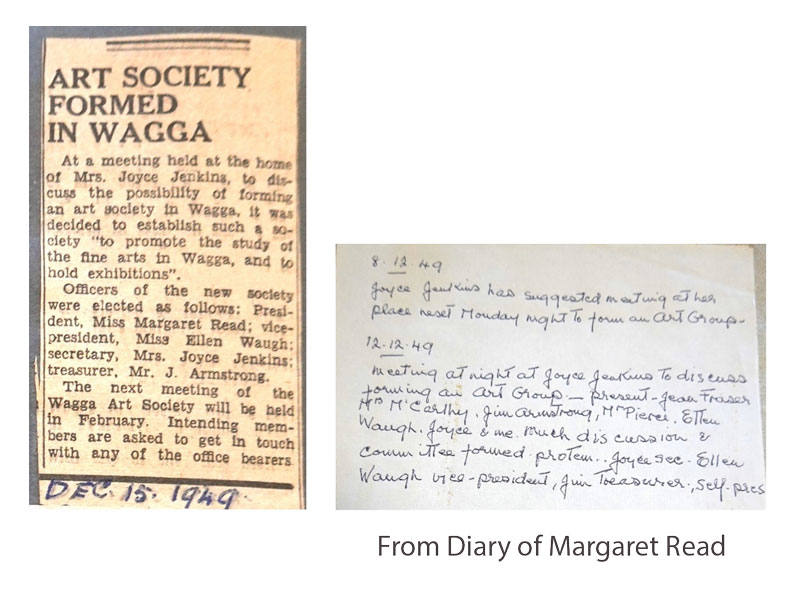 ART SOCIETY
FORMED
IN WAGGA
At a meeting held at the home
of Mrs. Joyce Jenkins, to dis-
cuss the possibility of forming
an art society in Wagga, it was
decided to establish such a so-
ciety "to promote the study of
the fine arts in Wagga, and to
hold exhibitions".
Officers of the new society
were elected as follows: Presi-
dent, Miss Margaret Read; vice-
president, Miss Ellen Waugh;
secretary, Mrs. Joyce Jenkins;
treasurer, Mr. J. Armstrong.
The next meeting of the
Wagga Art Society will be held
in February. Intending mem-
bers are asked to get in touch
with any of the office bearers
DEC. 15. 1949.
8.12.49
Joyce Jenkins has suggested meeting at her
place next Monday night to form an Art Group-
12.12.49
Meeting at night at Joyce Jenkins to discuss
forming an Art Group - present - Jean Fraser
Mrs McCarthy, Jim Armstrong, Mr Pierce, Ellen
Waugh, Joyce & me. Much discussion &
committee formed protem.. Joyce sec. Ellen
Waugh vice-president, Jim Treasurer., Self-pres
From Diary of Margaret Read